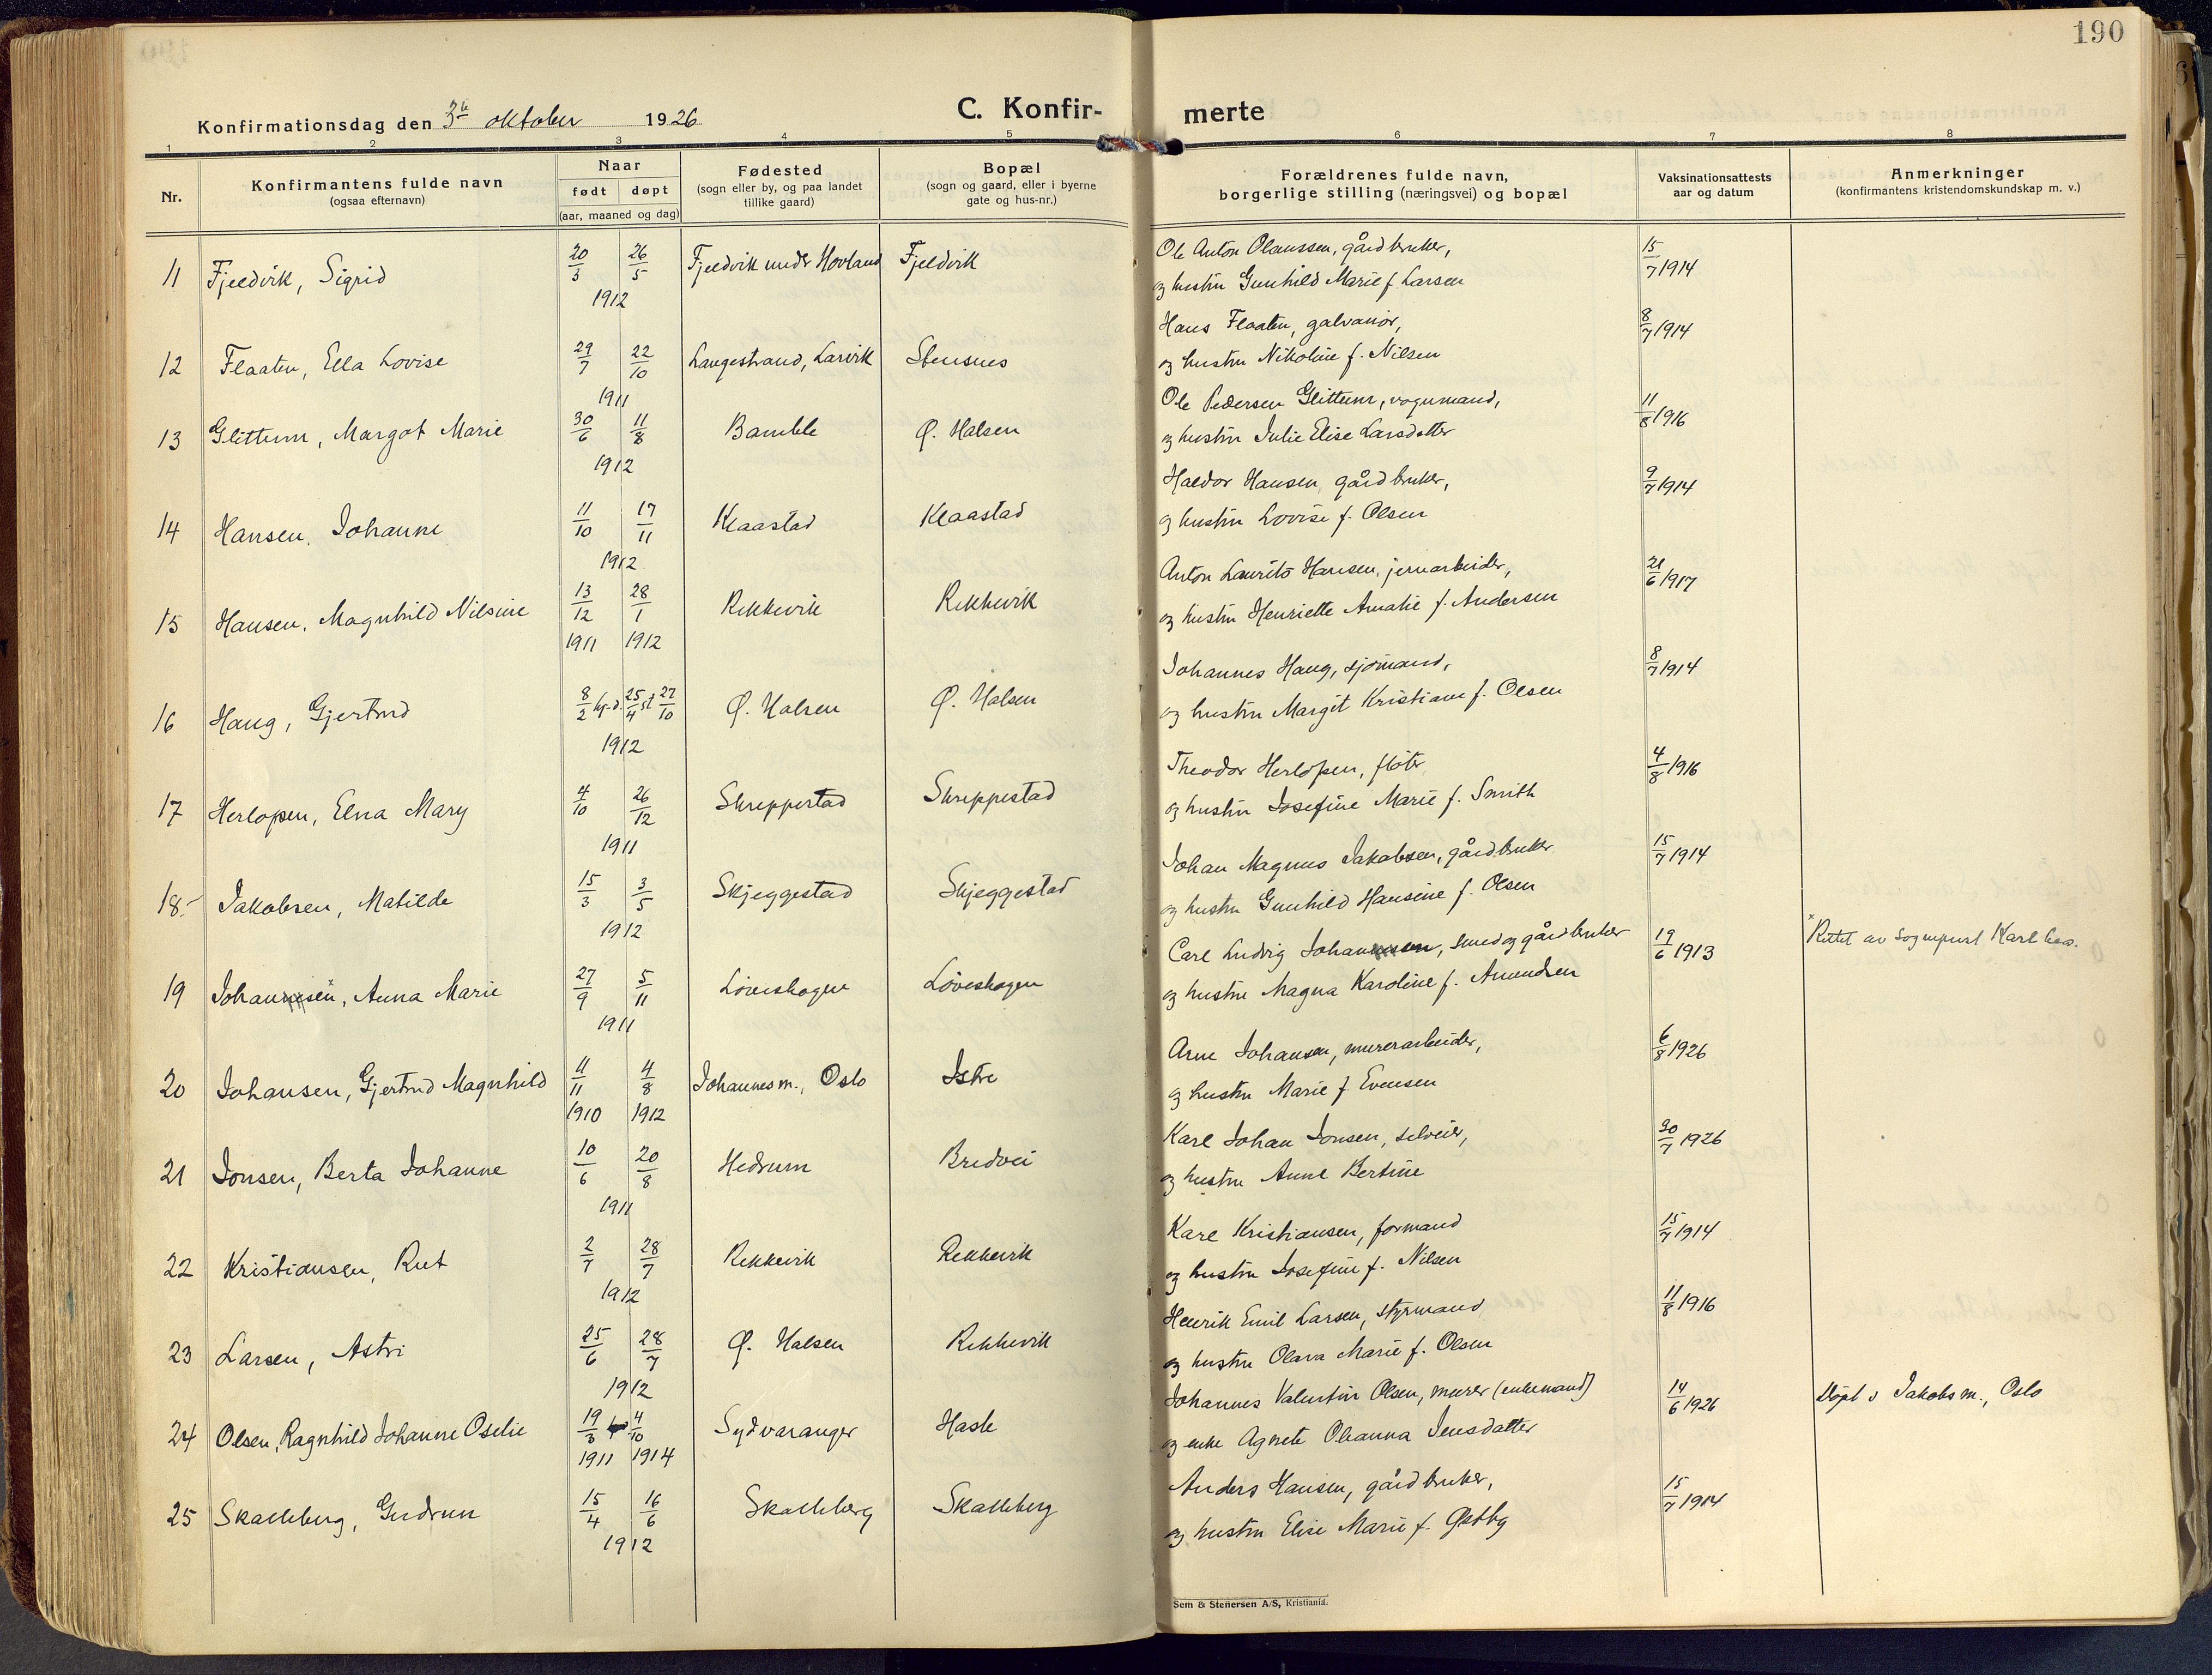 190
Konfirmationsdag den 3die oktober 1926
C. Konfir- merte
1 2 3 4 5 6 7 8
Nr.
Konfirmantens fulde navn
(ogsaa efternavn)
Naar
født døpt
(aar, maaned og dag)
Fødested
(sogn eller by, og paa landet
tillike gaard)
Bopæl
(sogn og gaard, eller i byerne
gate og hus-nr.)
Forældrenes fulde navn,
borgerlige stilling (næringsvei) og bopæl
Vaksinationsattests
aar og datum
Anmerkninger
(konfirmantens kristendomskundskap m. v.)
11 Fjeldvik, Sigrid 20/3 26/5 1912 Fjeldvik under Hovland Fjeldvik
Ole Anton Olaussen, gårdbruker, 15/7 1914
og hustru Gunhild Marie f. Larsen
12 Flaaten, Ella Lovise 29/7 22/10 1911 Langestrand, Larvik Stensnes
Hans Flaaten, galvanør, 8/7 1914
og hustru Nikoline f. Nilsen
13 Glittum, Margot Marie 30/6 11/8 1912 Bamble Ø. Halsen
Ole Pedersen Glittum, vognmand, 11/8 1916
og hustru Julie Elise Larsdatter
14 Hansen, Johanne 11/10 17/11 1912 Klaastad Klaastad
Haldor Hansen, gårdbruker, 9/7 1914
og hustru Lovise f. Olsen
15 Hansen, Magnhild Nilsine 13/12 1911 28/1 1912 Rekkevik Rekkevik
Anton Laurits Hansen, jernarbeider, 21/6 1917
og hustru Henriette Amalie f. Andersen
16 Haug, Gjertrud 8/2 hj-d. 25/4 st 27/10 1912 Ø. Halsen Ø. Halsen
Johannes Haug, sjømand, 8/7 1914
og hustru Margit Kristiane f. Olsen
17 Herlofsen, Elna Mary 4/10 26/12 1911 Skreppestad Skreppestad
Theodor Herlofsen, fløter 4/8 1916
og hustru Josefine Marie f. Smith
18.- Jakobsen, Matilde 15/3 3/5 1912 Skjeggestad Skjeggestad
Johan Magnus Jakobsen, gårdbruker 15/7 1914
og hustru Gunhild Hansine f. Olsen
19 Johannesen, Anna Marie 27/9 5/11 1911 Løveskogen Løveskogen
Carl Ludvig Johannesen, smed og gårdbruker 19/6 1913 × Rettet av sogneprest
og hustru Magna Karoline f. Amundsen
20 Johansen, Gjertrud Magnhild 11/11 1910 4/8 1912 Johannesm., Oslo Istre
Arne Johansen, murerarbeider, 6/8 1926
og hustru Marie f. Evensen
21 Jonsen, Berta Johanne 10/6 20/8 1911 Hedrum Bredvei
Karl Johan Jonsen, selveier, 30/7 1926
og hustru Anne Bertine
22 Kristiansen, Rut 2/7 28/7 1912 Rekkevik Rekkevik
Karl Kristiansen, formand 15/7 1914
og hustru Josefine f. Nilsen
23 Larsen, Astri 25/6 28/7 1912 Ø. Halsen Rekkevik
Henrik Emil Larsen, styrmand 11/8 1916
og hustru Olava Marie f. Olsen
24 Olsen, Ragnhild Johanne Oselie 19/3 1911 4/10 1914 Sydvaranger Hasle
Johannes Valentin Olsen, murer (enkemand) 14/6 1926 Døpt i Jakobs m., Oslo
og enke Agnete Oleanna Jensdatter
25 Skalleberg, Gudrun 15/4 16/6 1912 Skalleberg Skalleberg
Anders Hansen, gårdbruker, 15/7 1914
og hustru Elise Marie f.
Sem & Stenersen A/S, Kristiania.